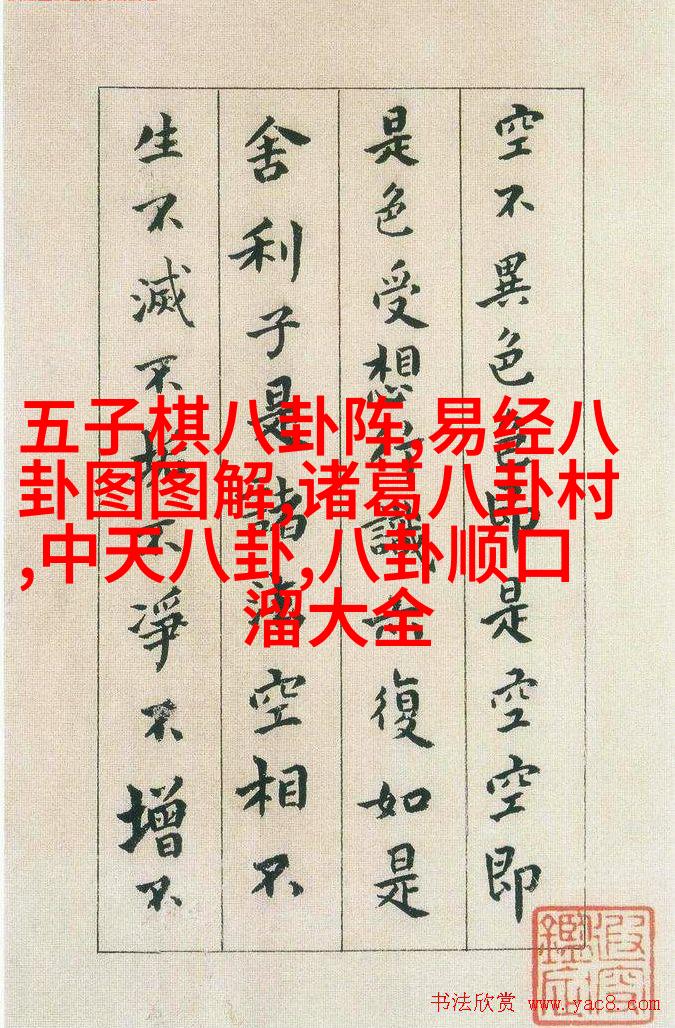 空不異色色即是空空即
是色受想行識亦復如是
舍利子是諸法空相不
生不滅不垢不淨不增不
五子棋八卦阵,易经八
卦图图解,诸葛八卦村
,中天八卦,八卦顺口
溜大全
书法欣赏 www.yac8.com